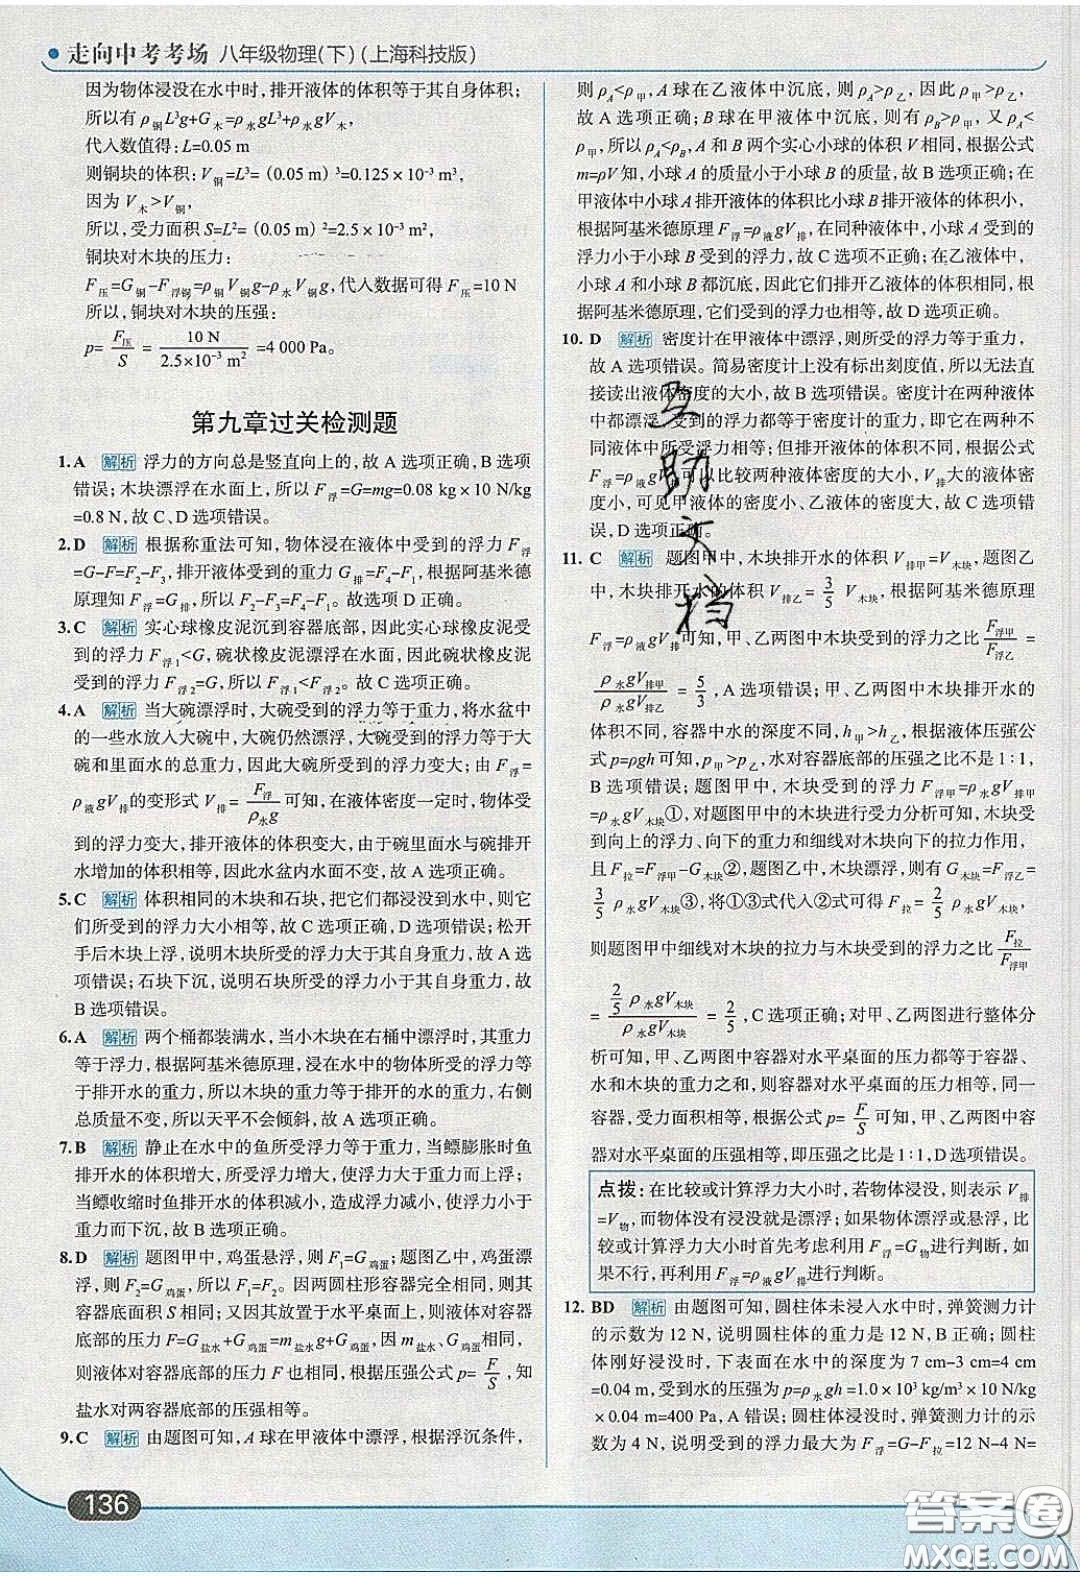 走向中考考场 八年级物理(下)(上海科技版)
因为物体浸没在水中时,排开液体的体积等于其自身体积;
所以有ρ铜L³g+G木=ρ水gL³+ρ水gV木,
代入数值得:L=0.05 m
则铜块的体积:V铜=L³=(0.05 m)³=0.125×10⁻³ m³,
因为 V木>V铜,
所以,受力面积 S=L²=(0.05 m)²=2.5×10⁻³ m²,
铜块对木块的压力:
F压=G铜-F浮铜=ρ铜V铜g-ρ水V铜g,代入数据可得:F压=10 N
所以,铜块对木块的压强:
p=F压/S=10 N/2.5×10⁻³ m²=4 000 Pa。
第九章过关检测题
1.A 解析 浮力的方向总是竖直向上的,故 A 选项正确,B 选项
错误;木块漂浮在水面上,所以 F浮=G=mg=0.08 kg×10 N/kg
=0.8 N,故 C、D 选项错误。
2.D 解析 根据称重法可知,物体浸在液体中受到的浮力 F浮
=G-F=F₂-F₃,排开液体受到的重力 G排=F₄-F₁,根据阿基米德
原理知 F浮=G排,所以 F₂-F₃=F₄-F₁。故选项 D 正确。
3.C 解析 实心球橡皮泥沉到容器底部,因此实心球橡皮泥受
到的浮力 F浮1<G,碗状橡皮泥漂浮在水面,因此碗状橡皮泥
受到的浮力 F浮2=G,所以 F浮1<F浮2。故 C 选项正确。
4.A 解析 当大碗漂浮时,大碗受到的浮力等于重力,将水盆中
的一些水放入大碗中,大碗仍然漂浮,大碗受到的浮力等于大
碗和里面水的总重力,因此大碗所受到的浮力变大;由 F浮=
ρ液gV排的变形式 V排=F浮/ρ水g可知,在液体密度一定时,物体受
到的浮力变大,排开液体的体积变大,由于碗里面水与碗排开
水增加的体积相等,因此水盆内水面不变。故 A 选项正确。
5.C 解析 体积相同的木块和石块,把它们都浸没到水中,则它
们所受到的浮力大小相等,故 C 选项正确,D 选项错误;松开
手后木块上浮,说明木块所受的浮力大于其自身重力,故 A 选
项错误;石块下沉,说明石块所受的浮力小于其自身重力,故
B 选项错误。
6.A 解析 两个桶都装满水,当小木块在右桶中漂浮时,其重力
等于浮力,根据阿基米德原理,浸在水中的物体所受的浮力等
于排开水的重力,所以木块的重力等于排开的水的重力,右侧
总质量不变,所以天平不会倾斜,故 A 选项正确。
7.B 解析 静止在水中的鱼所受浮力等于重力,当鳔膨胀时鱼
排开水的体积增大,所受浮力增大,使浮力大于重力而上浮;
当鳔收缩时鱼排开水的体积减小,造成浮力减小,使浮力小于
重力而下沉,故 B 选项正确。
8.D 解析 题图甲中,鸡蛋悬浮,则 F₁=G鸡蛋;题图乙中,鸡蛋漂
浮,则 F₂=G鸡蛋,所以 F₁=F₂。因两圆柱形容器完全相同,则其
容器底面积 S 相同;又因其放置于水平桌面上,则液体对容器
底部的压力 F=G盐水+G鸡蛋=m盐水g+G鸡蛋,因 m盐水、G鸡蛋相同,
则液体对容器底部的压力 F 也相同,根据压强公式 p=F/S,知
盐水对两容器底部的压强相等。
9.C 解析 由题图可知,A 球在甲液体中漂浮,根据浮沉条件,
则 ρA<ρ甲,A 球在乙液体中沉底,则 ρA>ρ乙,因此 ρ甲>ρ乙,
故 A 选项正确;B 球在甲液体中沉底,则有 ρB>ρ甲,又 ρA<
ρ甲,所以 ρA<ρB,A 和 B 两个实心小球的体积 V 相同,根据公式
m=ρV知,小球 A 的质量小于小球 B 的质量,故 B 选项正确;在
甲液体中小球 A 排开液体的体积比小球 B 排开液体的体积小,
根据阿基米德原理 F浮=ρ液gV排,在同种液体中,小球 A 受到的
浮力小于小球 B 受到的浮力,故 C 选项不正确;在乙液体中,
小球 A 和小球 B 都沉底,因此它们排开乙液体的体积相同,根
据阿基米德原理,它们受到的浮力也相等,故 D 选项正确。
10.D 解析 密度计在甲液体中漂浮,则所受的浮力等于重力,
故 A 选项错误。简易密度计上没有标出刻度值,所以无法直
接读出液体密度的大小,故 B 选项错误。密度计在两种液体
中都漂浮,受到的浮力都等于密度计的重力,即它在两种不
同液体中所受浮力相等;但排开液体的体积不同,根据公式
F浮=ρ液gV排可以比较两种液体密度的大小,V排大的液体密
度小,可见甲液体的密度小、乙液体的密度大,故 C 选项错
误,D 选项正确。
11.C 解析 题图甲中,木块排开水的体积 V排甲=V木块,题图乙
中,木块排开水的体积 V排乙=3/5 V木块,根据阿基米德原理
F浮=ρ液gV排可知,甲、乙两图中木块受到的浮力之比F浮甲/F浮乙=
ρ水gV排甲/ρ水gV排乙=5/3,A 选项错误;甲、乙两图中木块排开水的
体积不同,容器中水的深度不同,h甲>h乙,根据液体压强公
式 p=ρgh 可知,p甲>p乙,水对容器底部的压强之比不是 1∶1,
B 选项错误;题图甲中,木块受到的浮力 F浮甲=ρ水gV排甲=
ρ水gV木块①,对题图甲中的木块进行受力分析可知,木块受
到向上的浮力、向下的重力和细线对木块向下的拉力作用,
且 F拉=F浮甲-G木块②,题图乙中,木块漂浮,则有 G木块=F浮乙=
3/5 ρ水gV木块③,将①③式代入②式可得 F拉=2/5 ρ水gV木块,
则题图甲中细线对木块的拉力与木块受到的浮力之比F拉/F浮甲
=2/5 ρ水gV木块/ρ水gV木块=2/5,C 选项正确;对甲、乙图进行整体分
析可知,甲、乙两图中容器对水平桌面的压力都等于容器、
水和木块的重力之和,则容器对水平桌面的压力相等,同一
容器,受力面积相等,根据公式 p=F/S可知,甲、乙两图中容
器对水平桌面的压强相等,即压强之比是 1∶1,D 选项错误。
点拨:在比较或计算浮力大小时,若物体浸没,则表示 V排
=V物,而物体没有浸没就是漂浮;如果物体漂浮或悬浮,比
较或计算浮力大小时首先考虑利用 F浮=G物进行判断,如
果不行,再利用 F浮=ρ液gV排进行判断。
12.BD 解析 由题图可知,圆柱体未浸入水中时,弹簧测力计
的示数为 12 N,说明圆柱体的重力是 12 N,B 正确;圆柱
体刚好浸没时,下表面在水中的深度为 7 cm-3 cm=4 cm
=0.04 m,受到水的压强为 p=ρ水gh=1.0×10³ kg/m³×10 N/kg
×0.04 m=400 Pa,A 错误;圆柱体浸没时,弹簧测力计的示
数为 4 N,说明受到的浮力最大为 F浮=G-F拉=12 N-4 N=
互助文档
136
答案圈
MXQE.COM